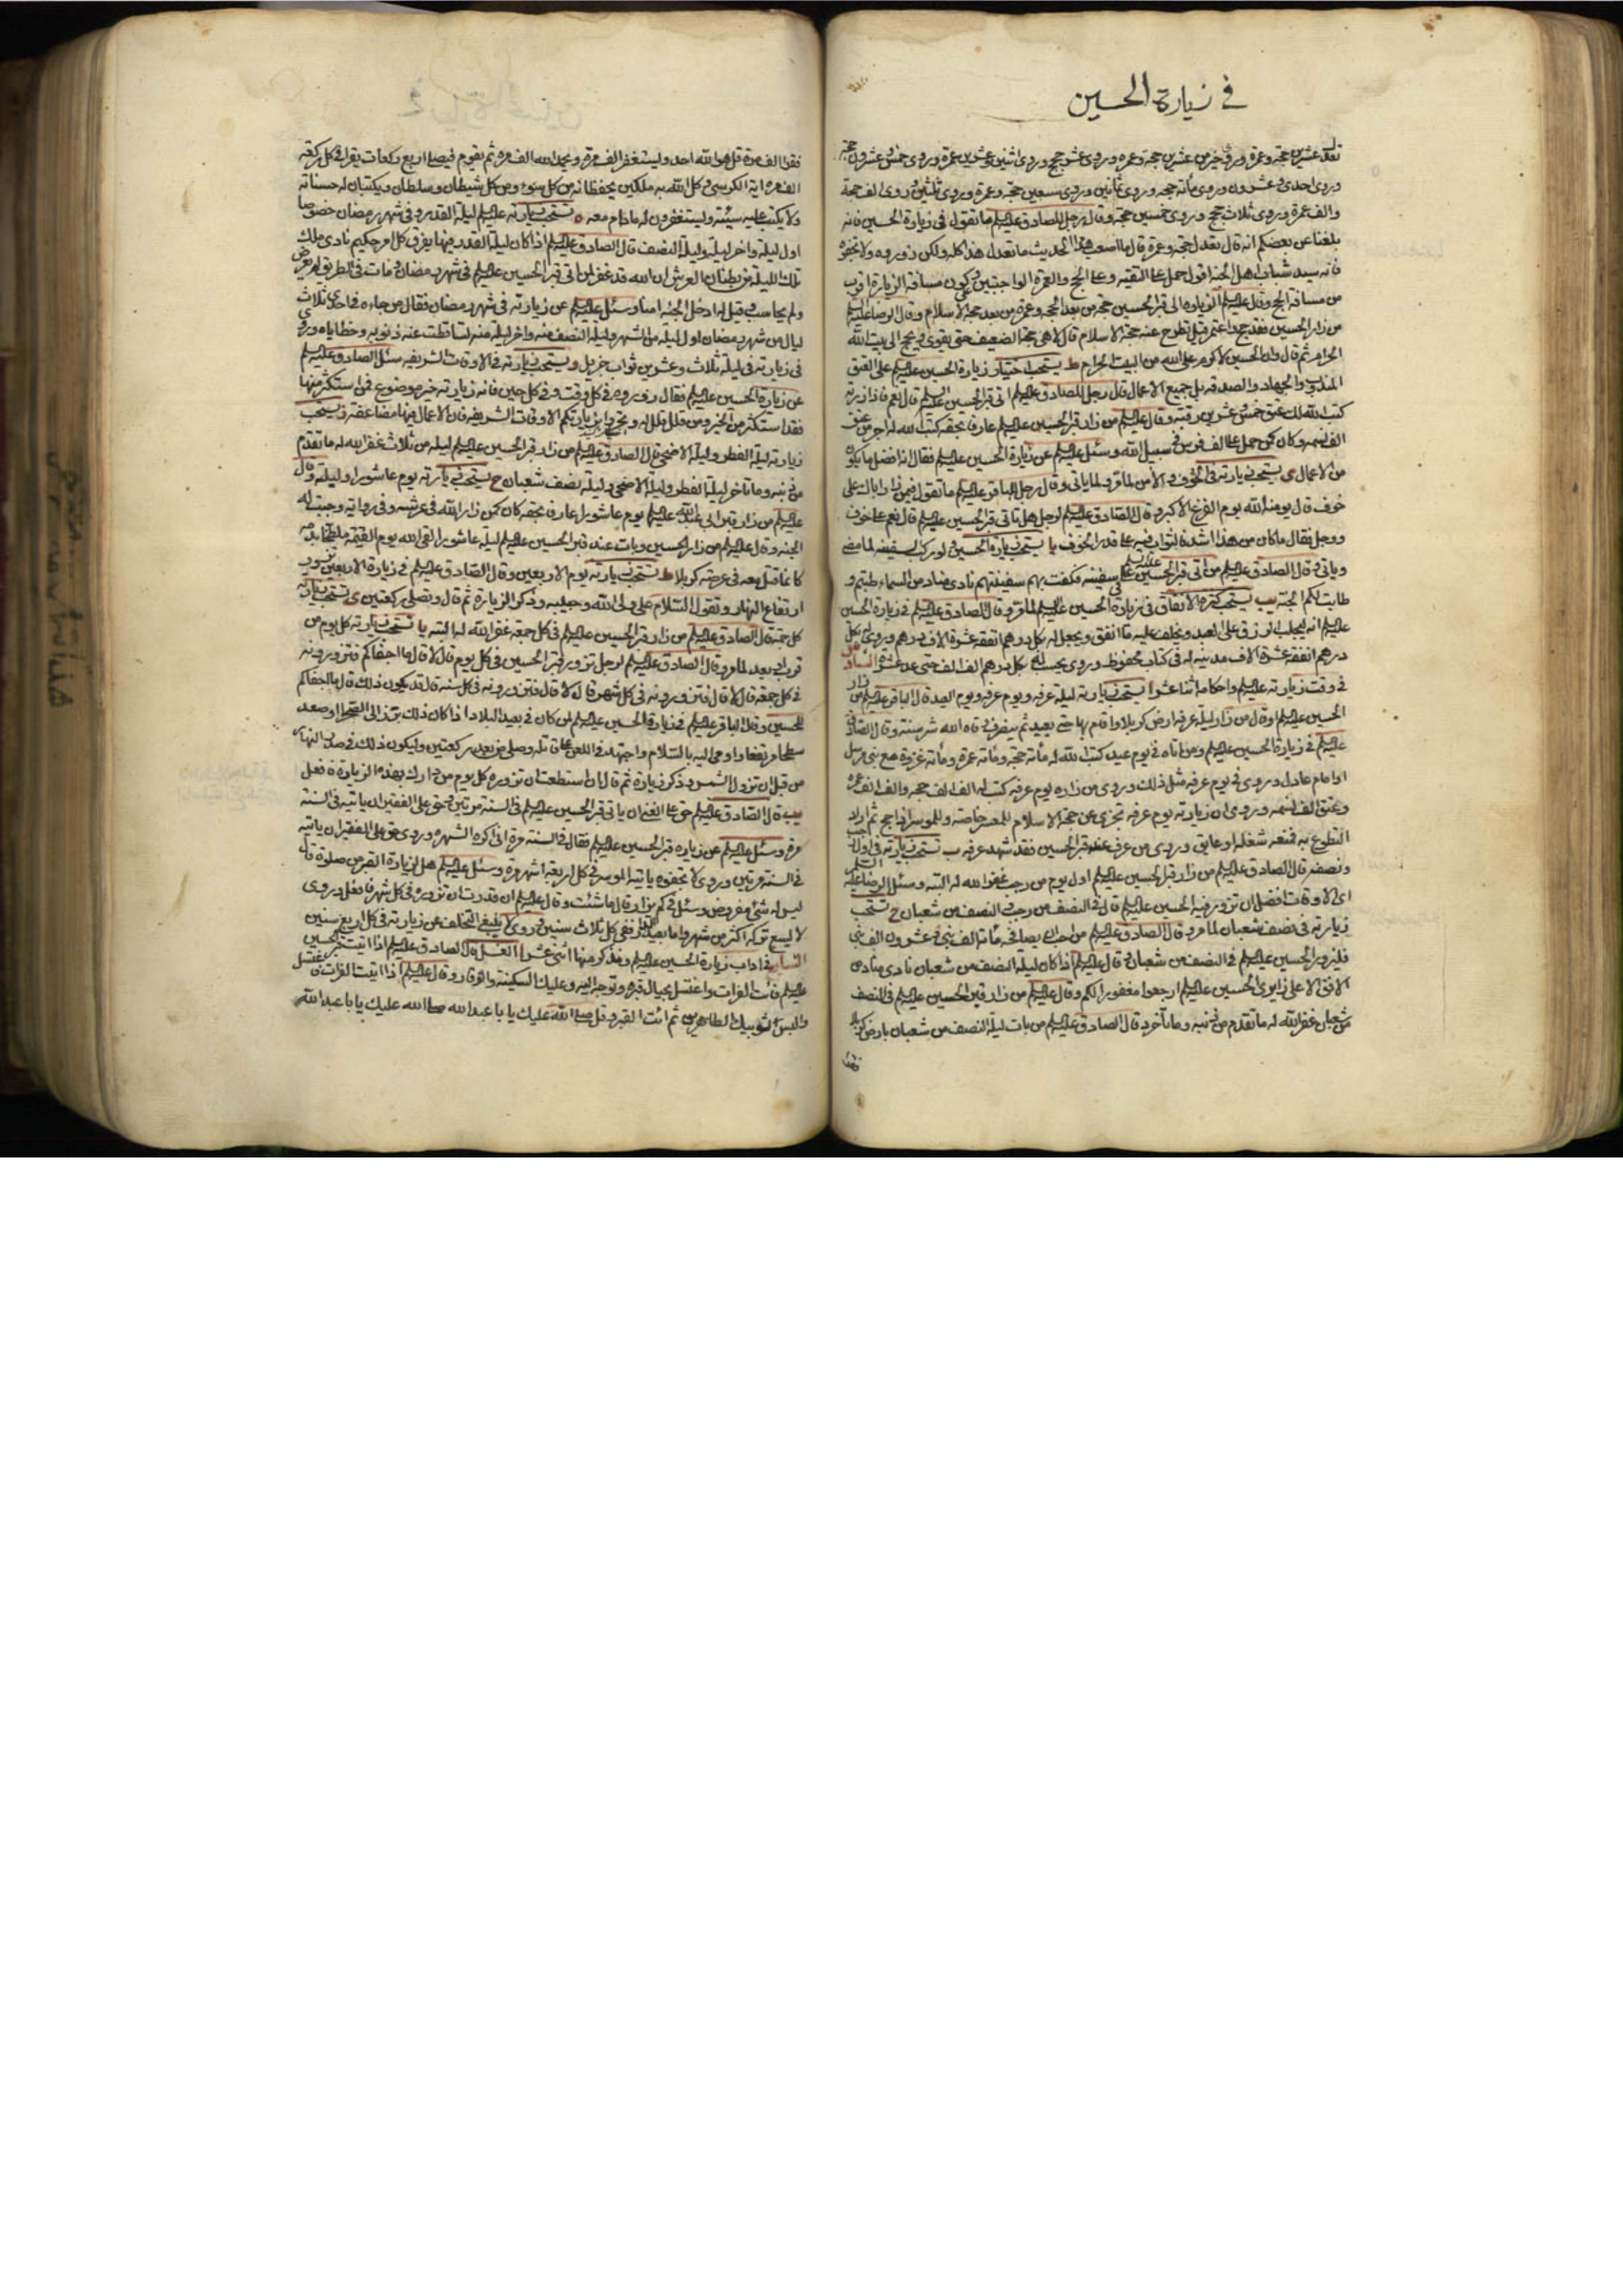 في زيارة الحسين
تعدل عشرين حجة وعمرة وروي خير من عشرين حجة وعمرة وروي عشر حجج وروي اثنين وعشرين عمرة وروي خمس وعشرون حجة
وروي احدى وعشرون وروي مأته حجه وروي ثمانين وروي سبعين حجة وعمرة وروي ثلثين وروى الف حجة
والف عمرة وروي ثلاث حجج وروي خمسين حجة وقال رجل للصادق عليه السلم ما تقول في زيارة الحسين فانه
بلغنا عن بعضكم انه قال تعدل حجة وعمرة قال ما اصعب هذا الحديث ما تعدل هذا كله ولكن زوروه ولا تجفوه
فانه سيد شباب اهل الجنة اقول حمل على التقيه وعلى الحج والعمرة الواجبتين وكون مسافة الزيارة اقرب
من مسافة الحج وقال عليه السلم الزياره الى قبر الحسين حجة من بعد الحجه وعمرة من بعد حجة الاسلام وقال الرضا عليه السلم
من زار الحسين فقد حج واعتمر قيل تطرح عنه حجة الاسلام قال لا هي حجة الضعيف حتى يقوى ويحج الى بيت الله
الحرام ثم قال وان الحسين لاكرم على الله من البيت الحرام ط يستحب اختيار زيارة الحسين عليه السلم على العتق
المندوب والجهاد والصدقه بل جميع الاعمال قال رجل للصادق عليه السلم اتى قبر الحسين عليه السلم قال نعم فاذا زرته
كتب الله لك عتق خمس وعشرين رقبة وقال عليه السلم من زار قبر الحسين عليه السلم عارفا بحقه كتب الله له اجر من عتق
الف نسمه وكان كمن حمل على الف فرس في سبيل الله وسئل عليه السلم عن زيارة الحسين عليه السلم فقال انه افضل ما يكون
من الاعمال ي يستحب زيارته في الخوف والأمن لما مر ولما ياتي وقال رجل للباقر عليه السلم ما تقول فيمن زار اباك على
خوف قال يومنه الله يوم الفزع الاكبر وقال الصادق عليه السلم لرجل هل تاتي قبر الحسين عليه السلم قال نعم على خوف
ووجل فقال ما كان من هذا اشد فالثواب فيه على قدر الخوف يا يستحب زيارة الحسين ولو ركب السفينه لما مضى
وياتي وقال الصادق عليه السلم من اتى قبر الحسين عليه السلم في سفينه فكفت بهم سفينتهم نادى مناد من السماء طبتم و
طابت لكم الجنة يب يستحب كثرة الانفاق في زيارة الحسين عليه السلم لما مر وقال الصادق عليه السلم في زيارة الحسين
عليه السلم انه ليجلب الرزق على العبد ويخلف عليه ما انفق ويجعل له بكل درهم انفقه عشرة الاف درهم وروي له بكل
درهم انفقه عشرة الاف مدينه له في كتاب محفوظ وروي يحسب له بكل درهم الف الف حتى عد عشرة السادس
في وقت زيارته عليه السلم واحكامه اثنا عشر ا يستحب زيارته ليلة عرفه ويوم عرفه ويوم العيد قال الباقر عليه السلم من زار
الحسين عليه السلم وقال من زار ليلة عرفه ارض كربلا واقام بها حتى يعيد ثم ينصرف وقاه الله شر سنته وقال الصادق
عليه السلم في زيارة الحسين عليه السلم ومن اتاه في يوم عيد كتب الله له مأته حجة ومأته عمرة ومأته غزوة مع نبي مرسل
او امام عادل وروي في يوم عرفه مثل ذلك وروي من زاره يوم عرفه كتب له الف الف حجه والف الف عمره
وعتق الف نسمه وروي ان زيارته يوم عرفه تجزي عن حجة الاسلام للمعسر خاصة وللموسر اذا حج ثم اراد
التطوع به فمنعه شغله او عايق وروي من عرف عند قبر الحسين فقد شهد عرفه ب تستحب زيارته في اول رجب
ونصفه قال الصادق عليه السلم من زار قبر الحسين عليه السلم اول يوم من رجب غفر الله له البتة وسئل الرضا عليه السلم
اي الاوقات افضل ان تزور فيه الحسين عليه السلم قال في النصف من رجب والنصف من شعبان ج تستحب
زيارته في نصف شعبان لما مر وقال الصادق عليه السلم من احب ان يصافحه مأته الف نبي وعشرون الف نبي
فليزور الحسين عليه السلم في النصف من شعبان وقال عليه السلم اذا كان ليلة النصف من شعبان نادى مناد من
الافق الاعلى زايري الحسين عليه السلم ارجعوا مغفورا لكم وقال عليه السلم من زار قبر الحسين عليه السلم في النصف
من شعبان غفر الله له ما تقدم من ذنبه وما تأخر وقال الصادق عليه السلم من بات ليلة النصف من شعبان بارض كربلا
فقرا
فقرا الف مرة قل هو الله احد وليستغفر الف مرة ويحمد الله الف مره ثم يقوم فيصلي اربع ركعات يقرا في كل ركعة
الف مره اية الكرسي وكل الله به ملكين يحفظانه من كل سوء ومن كل شيطان وسلطان ويكتبان له حسناته
ولا يكتب عليه سيئة وليستغفرون له ما دام معه ه تستحب زيارته عليه السلم ليلة القدر وفي شهر رمضان خصوصا
اول ليلة واخر ليلة وليلة النصف قال الصادق عليه السلم اذا كان ليلة القدر فيها يفرق كل امر حكيم نادى ملك
تلك الليلة من بطنان العرش ان الله قد غفر لمن اتى قبر الحسين عليه السلم في شهر رمضان ومات في الطريق لم يعرض
ولم يحاسب وقيل له ادخل الجنة امنا وسئل عليه السلم عن زيارته في شهر رمضان فقال من جاءه في احدى ثلاث
ليال من شهر رمضان اول ليله من الشهر وليلة النصف منه واخر ليلة منه تساقطت عنه ذنوبه وخطاياه وروي
في زيارته في ليلة ثلاث وعشرين ثواب جزيل و يستحب زيارته في الاوقات الشريفه سئل الصادق عليه السلم
عن زيارة الحسين عليه السلم فقال زوروه في كل وقت وفي كل حين فانه زيارته خير موضوع فمن استكثر منها
فقد استكثر من الخير ومن قلل قلل له وتحروا بزيارتكم الاوقات الشريفه فان الاعمال فيها مضاعفة ز يستحب
زيارته ليلة الفطر وليلة الاضحى قال الصادق عليه السلم من زار قبر الحسين عليه السلم ليله من ثلاث غفر الله له ما تقدم
من ذنبه وما تاخر ليلة الفطر وليلة الاضحى وليلة نصف شعبان ح يستحب زيارته يوم عاشورا وليلته وقال
عليه السلم من زار قبر ابي عبد الله عليه السلم يوم عاشورا عارفا بحقه كان كمن زار الله في عرشه وفي رواية وجبت له
الجنة وقال عليه السلم من زار الحسين وبات عند قبر الحسين عليه السلم ليله عاشورا لقي الله يوم القيمة ملطخا بدمه
كانما قتل معه في عرصة كربلا ط تستحب زيارته يوم الاربعين وقال الصادق عليه السلم في زيارة الاربعين تزور
ارتفاع النهار وتقول السلام على ولي الله وحبيبه وذكر الزيارة ثم قال وتصلي ركعتين ي تستحب زيارته
كل جمعة قال الصادق عليه السلم من زار قبر الحسين عليه السلم في كل جمعة غفر الله له البتة يا تستحب زيارته كل يوم من
قرب او بعد لما مر وقال الصادق عليه السلم لرجل تزور قبر الحسين في كل يوم قال لا قال ما اجفاكم فتزورونه
في كل جمعة قال لا قال فتزورونه في كل شهر قال لا قال فتزورونه في كل سنة قال قد يكون ذلك قال ما اجفاكم
للحسين وقال الباقر عليه السلم في زيارة الحسين عليه السلم لمن كان في بعيد البلاد اذا كان ذلك برز الى الصحرا او صعد
سطحا مرتفعا واومى اليه بالسلام واجتهد في اللعن على قاتله وصلى من بعد ركعتين وليكون ذلك في صدر النهار
من قبل ان تزول الشمس وذكر زيارة ثم قال ان استطعت ان تزوره كل يوم من دارك بهذه الزيارة فافعل
يب قال الصادق عليه السلم حق على الغني ان ياتي قبر الحسين عليه السلم في السنة مرتين وحق على الفقير ان ياتيه في السنة
مرة وسئل عليه السلم عن زياره قبر الحسين عليه السلم فقال في السنة مرة اني اكره الشهرة وروي حق على الفقير ان ياتيه
في السنة مرتين وروي لا تجفوه ياتيه الموسر في كل اربعة اشهر مرة وسئل عليه السلم هل لزيارة القبر من صلوة قال
ليس له شئ مفروض وسئل في كم يزار قال ما شئت وقال عليه السلم ان قدرت ان تزوره في كل شهر فافعل وروي
لا يسع تركه اكثر من شهر واما بعيد الدار ففي كل ثلاث سنين وروي لا ينبغي التخلف عن زيارته في كل اربع سنين
السابع في اداب زيارة الحسين عليه السلم ونذكر منها اثنى عشر ا الغسل قال الصادق عليه السلم اذا اتيت قبر الحسين
عليه السلم فائت الفرات واغتسل بحيال قبره وتوجه اليه وعليك السكينة والوقار وقال عليه السلم اذا اتيت الفرات فاغتسل
والبس ثوبيك الطاهرين ثم ائت القبر وقل صلى الله عليك يا با عبد الله صلى الله عليك يا با عبد الله